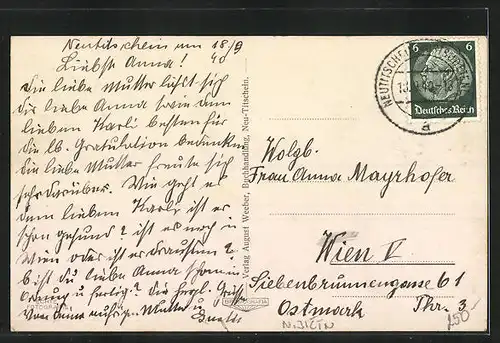 Neutitschein am 18/9
40
Liebste Anna!
Die liebe Mutter läßt sich
die liebe Anna sowie dem
lieben Karli bestens für
die lb. Gratulation bedanken
die liebe Mutter freute sich
sehr darüber. Wie geht es
dem lieben Karli ist er
schon gesund? ist er noch in
Wien oder ist er draußen?
bist du liebe Anna schon in
Ordnung u fertig? Die herzl. Grüße
von deine aufrig. Mutter u
Verlag August Weeber, Buchhandlung, Neu-Titschein.
6 6
Deutsches Reich
NEUTITSCHEIN
a
Wolgb.
Frau Anna Mayrhofer
Wien V
Siebenbrunnengasse 61
Ostmark Thr. 3
250